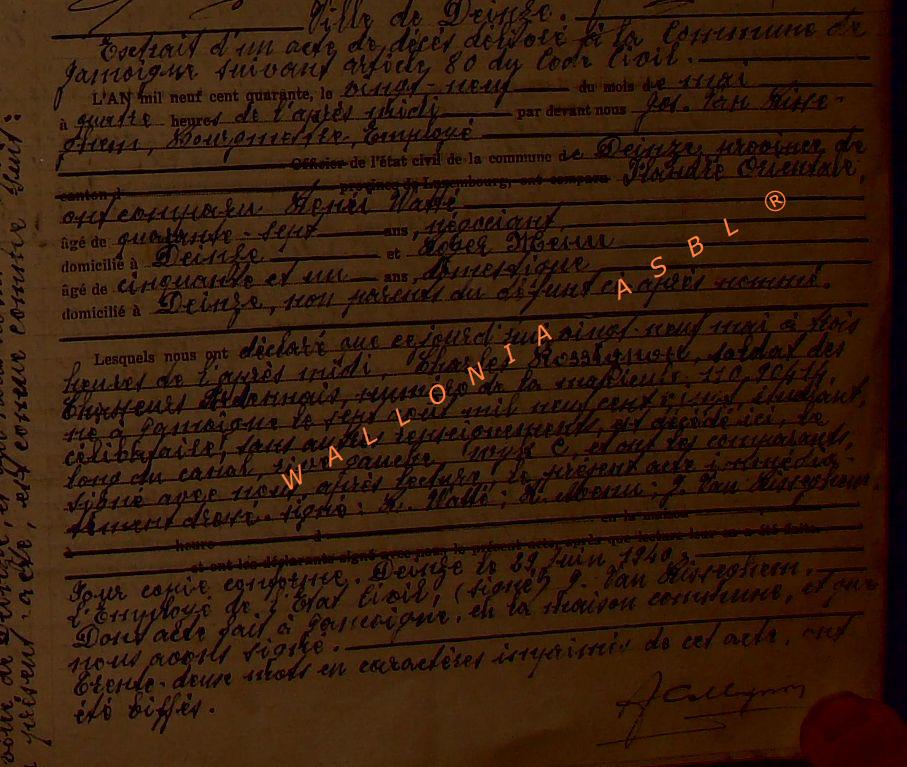 Ville de Deinze.
Extrait d'un acte de décès envoyé à la Commune de
Jamoigne suivant article 80 du Code Civil.
L'AN mil neuf cent quarante, le vingt-neuf du mois de mai
à quatre heures de l'après midi par devant nous Jos. Van Risse-
ghem, Bourgmestre, Employé
Officier de l'état civil de la commune de Deinze, province de
canton d province de Luxembourg, ont comparu Flandre Orientale,
ont comparu Henri Watté
âgé de quarante-sept ans, négociant,
domicilié à Deinze et
âgé de cinquante et un ans, domestique
domicilié à Deinze, non parents du défunt ci après nommé.
Lesquels nous ont déclaré que cejourd'hui vingt-neuf mai à trois
heures de l'après midi, Charles Rossignon, soldat des
Chasseurs Ardennais, numéro de la matricule
né à Jamoigne le sept août mil neuf cent vingt, étudiant,
célibataire, sans autres renseignements, est décédé ici, le
long du canal, rive gauche et ont les comparants,
signé avec nous après lecture, le présent acte immédia-
tement dressé. Signé: H. Watté; J. Van Risseghem.
en la maison
à heure d
et ont les déclarants signé avec nous le présent acte, après que lecture leur en a été faite.
Pour copie conforme. Deinze le 29 Juin 1940.
l'Employé de l'Etat Civil, (signé) J. Van Risseghem.
Dont acte fait à Jamoigne, en la maison commune, et que
nous avons signé.
Trente-deux mots en caractères imprimés de cet acte, ont
été biffés.
A Collignon
présent acte, est comme suit:
WALLONIA ASBL ®